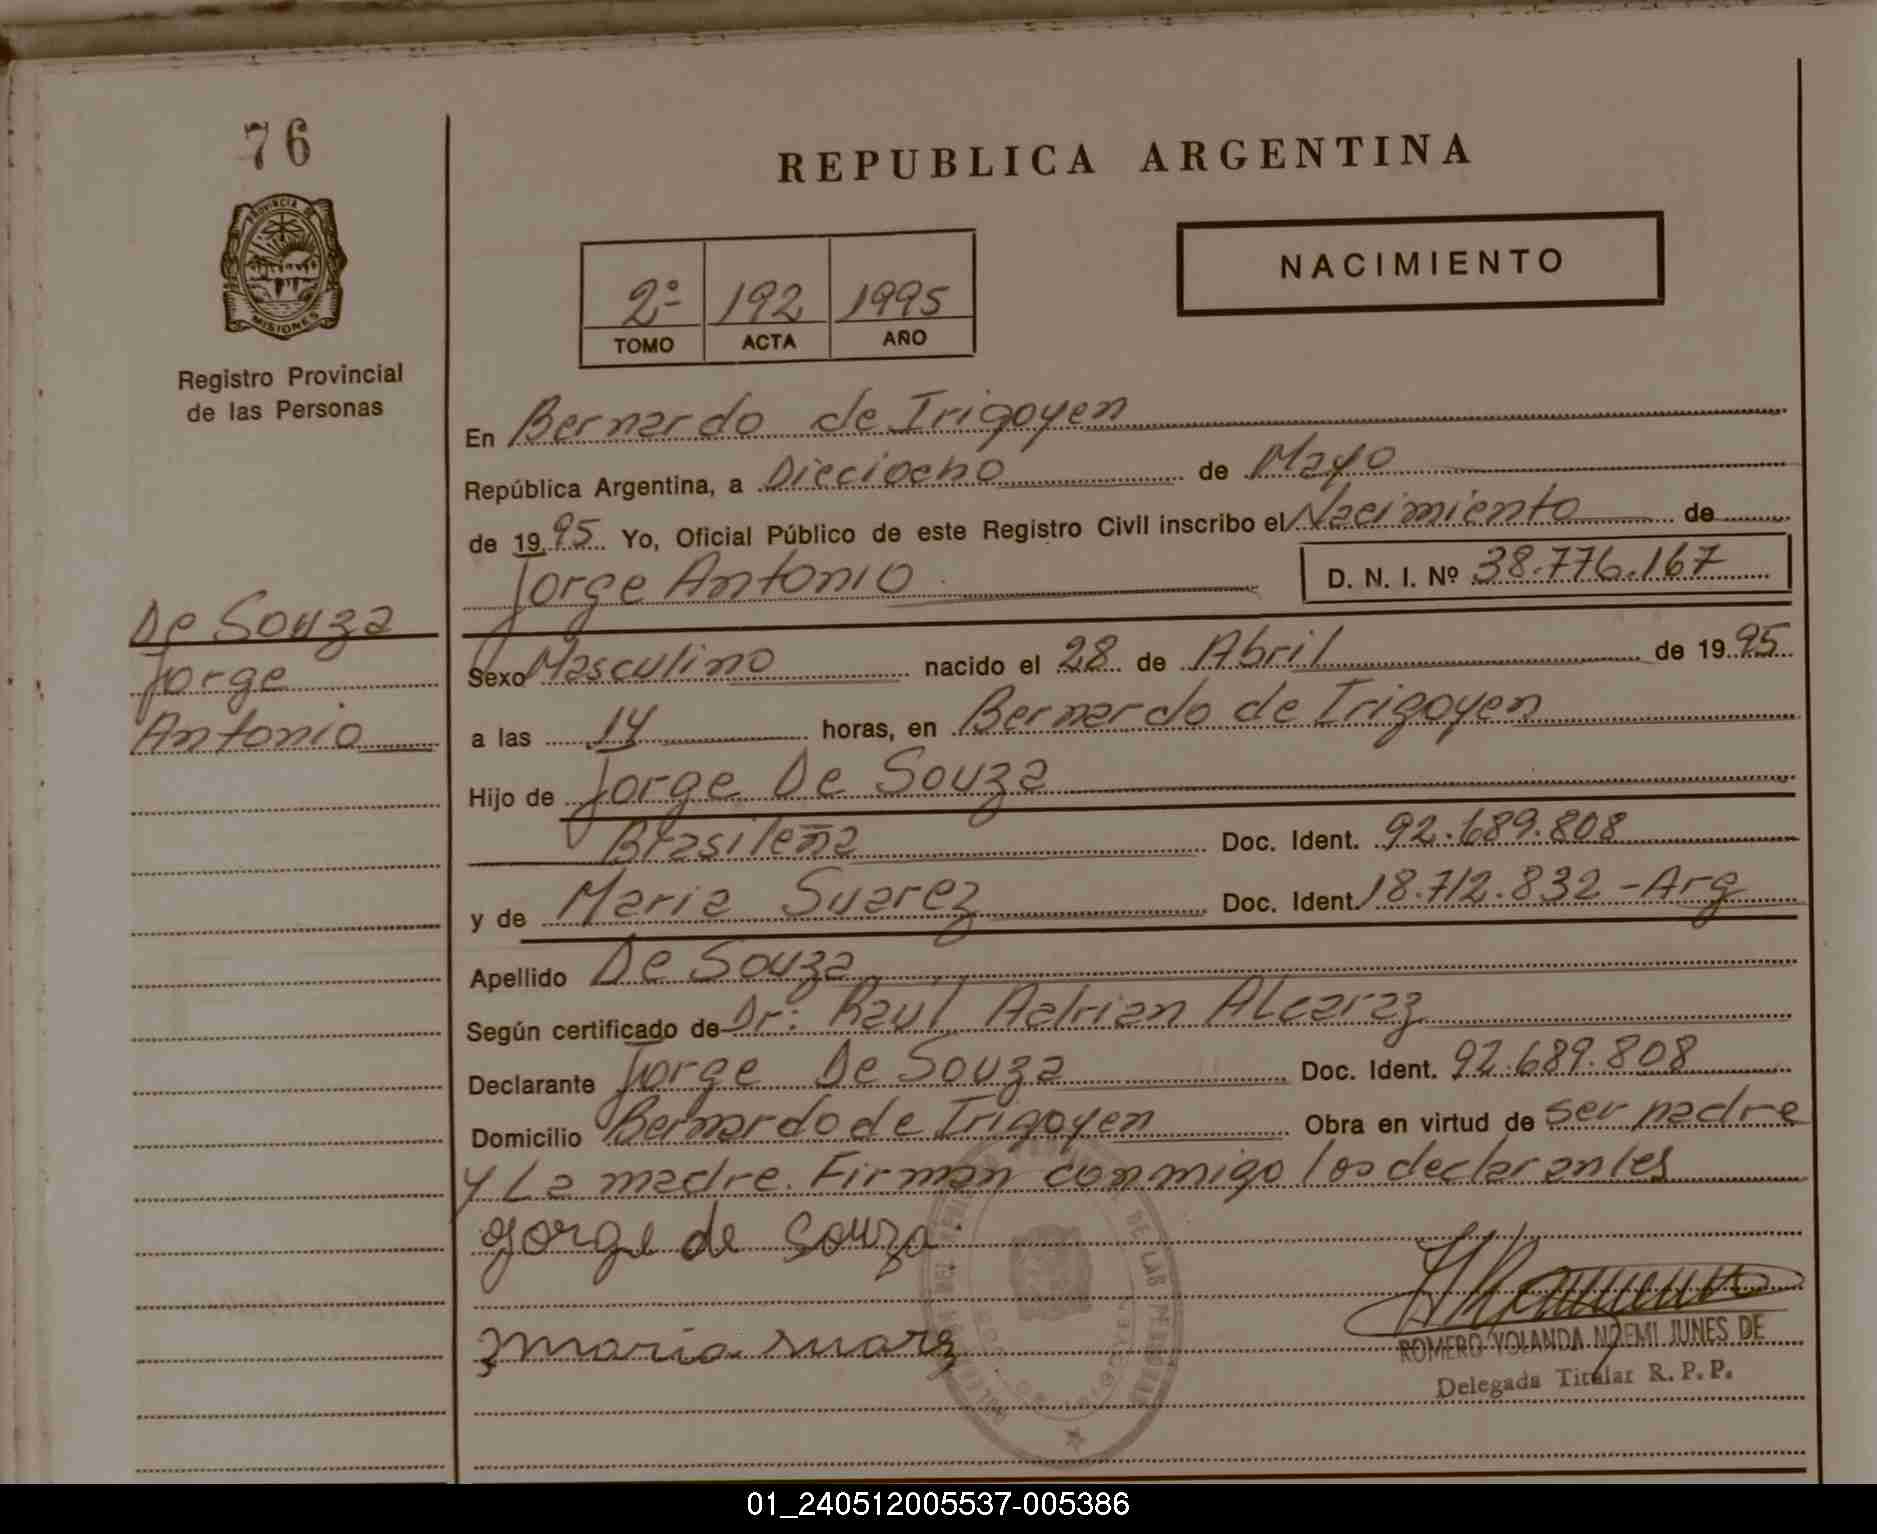 76
REPUBLICA ARGENTINA
PROVINCIA DE
MISIONES
Registro Provincial
de las Personas
2º 192 1995
TOMO ACTA AÑO
NACIMIENTO
En Bernardo de Irigoyen
República Argentina, a Dieciocho de Mayo
de 1995 Yo, Oficial Público de este Registro Civil inscribo el Nacimiento de
Jorge Antonio D. N. I. Nº 38.776.167
De Souza
Jorge
Antonio
Sexo Masculino nacido el 28 de Abril de 1995
a las 14 horas, en Bernardo de Irigoyen
Hijo de Jorge De Souza
Brasileña Doc. Ident. 92.689.808
y de Maria Suarez Doc. Ident. 18.712.832 - Arg
Apellido De Souza
Según certificado de Dr: Raúl Adrian Alcaraz
Declarante Jorge De Souza Doc. Ident. 92.689.808
Domicilio Bernardo de Irigoyen Obra en virtud de ser padre
y La madre. Firman conmigo los declarantes
Jorge de Souza
maria suarz
ROMERO YOLANDA NOEMI JUNES DE
Delegada Titular R. P. P.
01_240512005537-005386